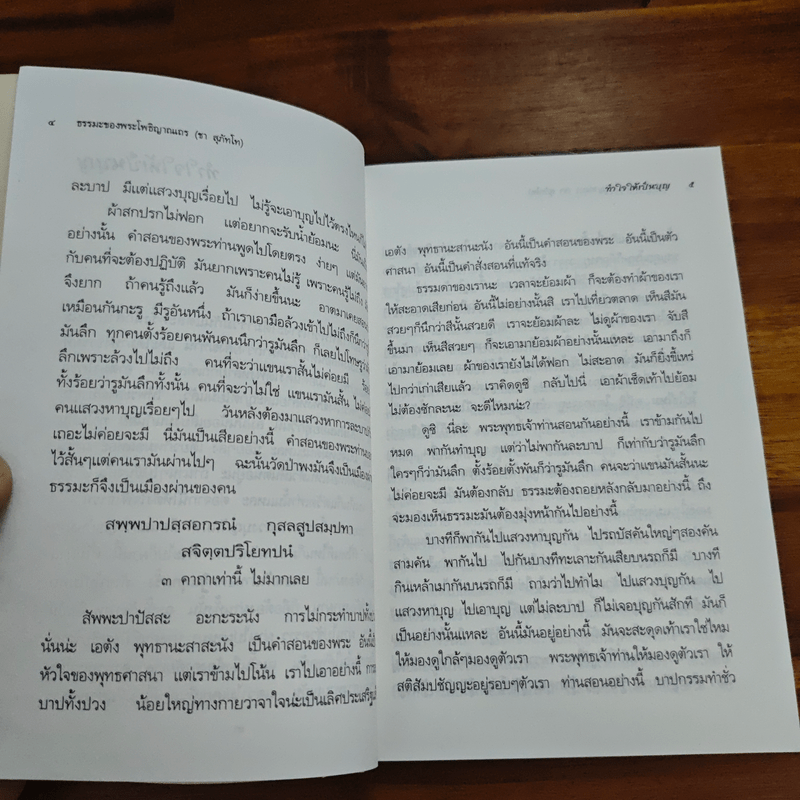 ๔ ธรรมะของพระโพธิญาณเถร (ชา สุภัทโท)
ละบาป มีแต่แสวงบุญเรื่อยไป ไม่รู้จะเอาบุญไปไว้ตรงไหน
ผ้าสกปรกไม่ฟอก แต่อยากจะรับน้ำย้อมนะ
อย่างนั้น คำสอนของพระท่านพูดไปโดยตรง ง่ายๆ แต่มัน
กับคนที่จะต้องปฏิบัติ มันยากเพราะคนไม่รู้ เพราะคนรู้ไม่ถึง
จึงยาก ถ้าคนรู้ถึงแล้ว มันก็ง่ายขึ้นนะ อาตมาเคยสอน
เหมือนกันกะรู มีรูอันหนึ่ง ถ้าเราเอามือล้วงเข้าไปไม่ถึงก็นึกว่า
มันลึก ทุกคนตั้งร้อยคนพันคนนึกว่ารูมันลึก ก็เลยไปโทษรู
ลึกเพราะล้วงไปไม่ถึง คนที่จะว่าแขนเราสั้นไม่ค่อยมี
ทั้งร้อยว่ารูมันลึกทั้งนั้น คนที่จะว่าไม่ใช่ แขนเรามันสั้น ไม่ค่อย
คนแสวงหาบุญเรื่อยๆไป วันหลังต้องมาแสวงหาการละบาป
เถอะไม่ค่อยจะมี นี่มันเป็นเสียอย่างนี้ คำสอนของพระท่าน
ไว้สั้นๆแต่คนเรามันผ่านไปๆ ฉะนั้นวัดป่าพงมันจึงเป็นเมือง
ธรรมะก็จึงเป็นเมืองผ่านของคน
สพฺพปาปสฺสอกรณํ กุสลสูปสมฺปทา
สจิตฺตปริโยทปนํ
๓ คาถาเท่านี้ ไม่มากเลย
สัพพะปาปัสสะ อะกะระนัง การไม่กระทำบาป
นั่นน่ะ เอตัง พุทธานะสาสะนัง เป็นคำสอนของพระ
หัวใจของพุทธศาสนา แต่เราข้ามไปโน้น เราไปเอาอย่างนี้
บาปทั้งปวง น้อยใหญ่ทางกายวาจาใจน่ะเป็นเลิศประเสริฐ
ทำใจให้เป็นบุญ ๕
เอตัง พุทธานะสานะนัง อันนี้เป็นคำสอนของพระ อันนี้เป็นตัว
ศาสนา อันนี้เป็นคำสั่งสอนที่แท้จริง
ธรรมดาของเรานะ เวลาจะย้อมผ้า ก็จะต้องทำผ้าของเรา
ให้สะอาดเสียก่อน อันนี้ไม่อย่างนั้นสิ เราไปเที่ยวตลาด เห็นสีมัน
สวยๆก็นึกว่าสีนั้นสวยดี เราจะย้อมผ้าละ ไม่ดูผ้าของเรา จับสี
ขึ้นมา เห็นสีสวยๆ ก็จะเอามาย้อมผ้าอย่างนั้นแหละ เอามาถึงก็
เอามาย้อมเลย ผ้าของเรายังไม่ได้ฟอก ไม่สะอาด มันก็ยิ่งขี้เหร่
ไปกว่าเก่าเสียแล้ว เราคิดดูซิ กลับไปนี่ เอาผ้าเช็ดเท้าไปย้อม
ไม่ต้องซักละนะ จะดีไหมน่ะ?
ดูซิ นี่ละ พระพุทธเจ้าท่านสอนกันอย่างนี้ เราข้ามกันไป
หมด พากันทำบุญ แต่ว่าไม่พากันละบาป ก็เท่ากับว่ารูมันลึก
ใครๆก็ว่ามันลึก ตั้งร้อยตั้งพันก็ว่ารูมันลึก คนจะว่าแขนมันสั้นนะ
ไม่ค่อยจะมี มันต้องกลับ ธรรมะต้องถอยหลังกลับมาอย่างนี้ ถึง
จะมองเห็นธรรมะมันต้องมุ่งหน้ากันไปอย่างนี้
บางทีก็พากันไปแสวงหาบุญกัน ไปรถบัสคันใหญ่ๆสองคัน
สามคัน พากันไป ไปกันบางทีทะเลาะกันเสียบนรถก็มี บางที
กินเหล้าเมากันบนรถก็มี ถามว่าไปทำไม ไปแสวงบุญกัน ไป
แสวงหาบุญ ไปเอาบุญ แต่ไม่ละบาป ก็ไม่เจอบุญกันสักที มันก็
เป็นอย่างนั้นแหละ อันนี้มันอยู่อย่างนี้ มันจะสะดุดเท้าเราใช่ไหม
ให้มองดูใกล้ๆมองดูตัวเรา พระพุทธเจ้าท่านให้มองดูตัวเรา ให้
สติสัมปชัญญะอยู่รอบๆตัวเรา ท่านสอนอย่างนี้ บาปกรรมทำชั่ว